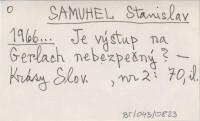 SAMUHEL Stanislav
1966... Je výstup na
Gerlach nebezpečný? —
Krásy Slov. , nr 2: 70, il.
BT/043/0823